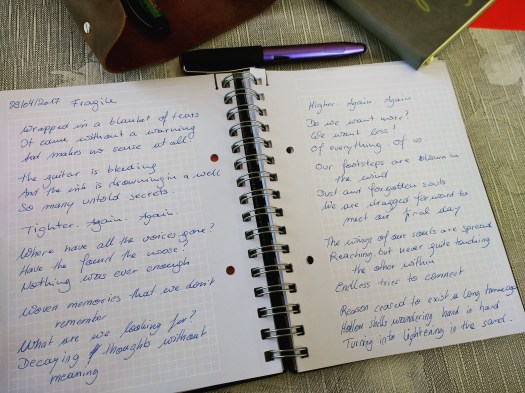 28/04/2017 Fragile
Wrapped in a blanket of tears
It came without a warning
And makes no sense at all
The guitar is bleeding
And the ink is drowning in a well
So many untold secrets
Tighter. Again. Again.
Where have all the voices gone?
Have the found the noose?
Nothing was ever enough
Woven memories that we don't
remember
What are we looking for?
Decaying thoughts without
meaning
Higher. Again. Again
Do we want more?
We want less!
Of everything of us
Our footsteps are blown in
the wind
Dust and forgotten souls
We are dragged forward to
meet our final day
The wings of our souls are spread
Reaching, but never quite touching
the other within
Endless tries to connect
Reason ceased to exist a long time ago
Hollow shells wandering hand in hand
Turning into lightening in the sand.